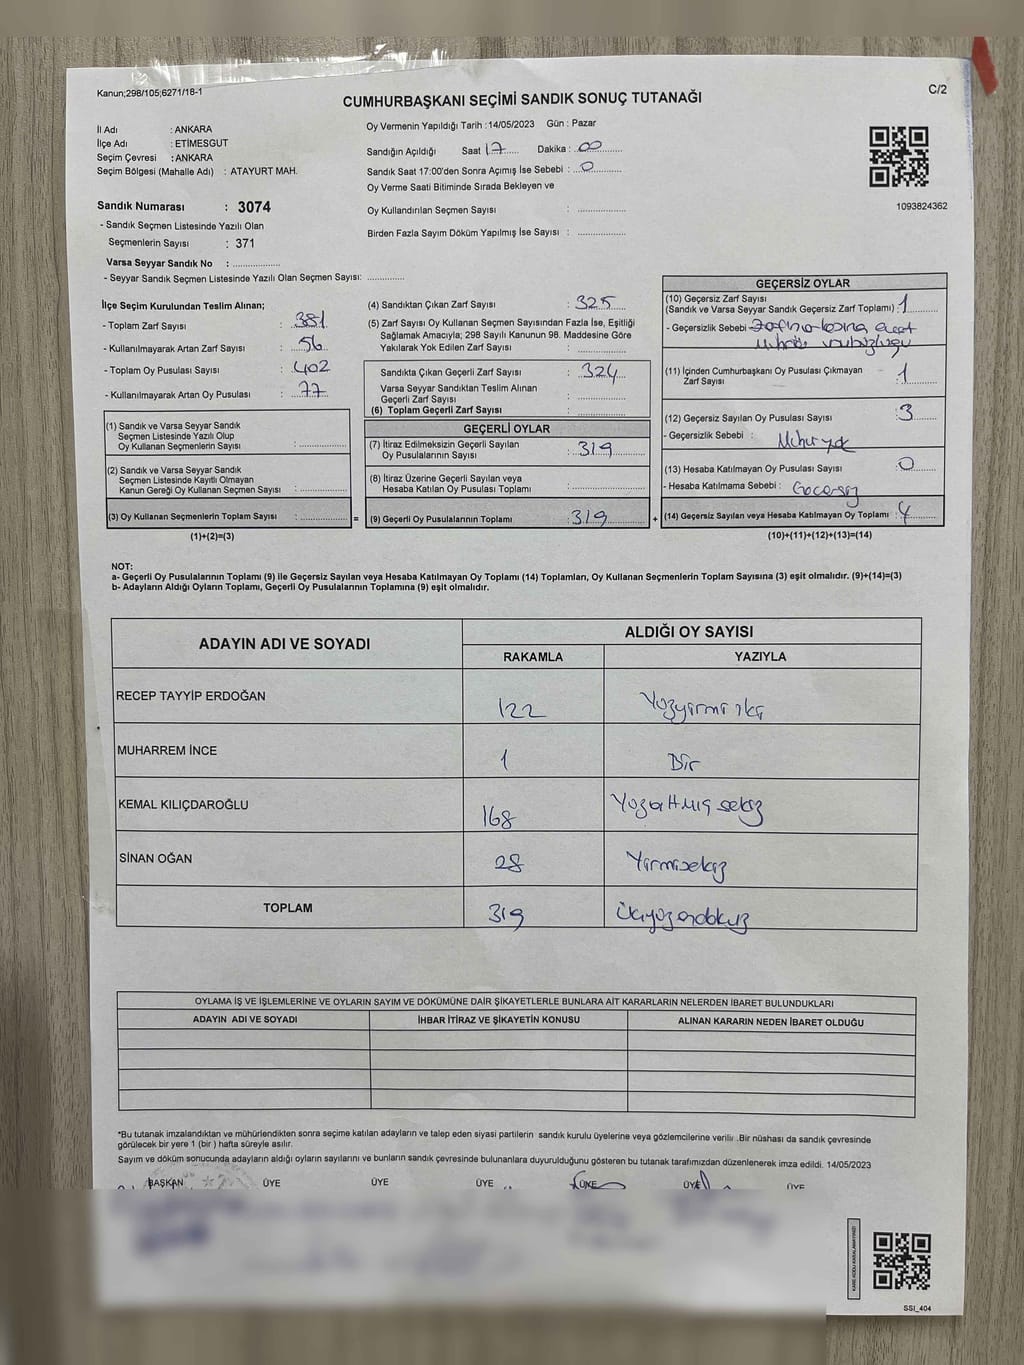 Kanun;298/105;6271/18-1
C/2
CUMHURBAŞKANI SEÇİMİ SANDIK SONUÇ TUTANAĞI
İl Adı : ANKARA
İlçe Adı : ETİMESGUT
Seçim Çevresi : ANKARA
Seçim Bölgesi (Mahalle Adı) : ATAYURT MAH.
Sandık Numarası : 3074
- Sandık Seçmen Listesinde Yazılı Olan
Seçmenlerin Sayısı : 371
Varsa Seyyar Sandık No :
- Seyyar Sandık Seçmen Listesinde Yazılı Olan Seçmen Sayısı:
Oy Vermenin Yapıldığı Tarih :14/05/2023 Gün : Pazar
Sandığın Açıldığı Saat 17 Dakika : 00
Sandık Saat 17:00'den Sonra Açımış İse Sebebi : 0
Oy Verme Saati Bitiminde Sırada Bekleyen ve
Oy Kullandırılan Seçmen Sayısı :
Birden Fazla Sayım Döküm Yapılmış İse Sayısı :
1093824362
İlçe Seçim Kurulundan Teslim Alınan;
- Toplam Zarf Sayısı : 381
- Kullanılmayarak Artan Zarf Sayısı : 56
- Toplam Oy Pusulası Sayısı : 402
- Kullanılmayarak Artan Oy Pusulası : 77
(1) Sandık ve Varsa Seyyar Sandık
Seçmen Listesinde Yazılı Olup
Oy Kullanan Seçmenlerin Sayısı :
(2) Sandık ve Varsa Seyyar Sandık
Seçmen Listesinde Kayıtlı Olmayan
Kanun Gereği Oy Kullanan Seçmen Sayısı :
(3) Oy Kullanan Seçmenlerin Toplam Sayısı : =
(1)+(2)=(3)
(4) Sandıktan Çıkan Zarf Sayısı : 325
(5) Zarf Sayısı Oy Kullanan Seçmen Sayısından Fazla İse, Eşitliği
Sağlamak Amacıyla; 298 Sayılı Kanunun 98. Maddesine Göre
Yakılarak Yok Edilen Zarf Sayısı :
Sandıkta Çıkan Geçerli Zarf Sayısı : 324
Varsa Seyyar Sandıktan Teslim Alınan
Geçerli Zarf Sayısı :
(6) Toplam Geçerli Zarf Sayısı :
GEÇERLİ OYLAR
(7) İtiraz Edilmeksizin Geçerli Sayılan
Oy Pusulalarının Sayısı : 319
(8) İtiraz Üzerine Geçerli Sayılan veya
Hesaba Katılan Oy Pusulası Toplamı :
(9) Geçerli Oy Pusulalarının Toplamı : 319 +
GEÇERSİZ OYLAR
(10) Geçersiz Zarf Sayısı
(Sandık ve Varsa Seyyar Sandık Geçersiz Zarf Toplamı) : 1
- Geçersizlik Sebebi :
(11) İçinden Cumhurbaşkanı Oy Pusulası Çıkmayan
Zarf Sayısı : 1
(12) Geçersiz Sayılan Oy Pusulası Sayısı : 3
- Geçersizlik Sebebi : Mühür yok
(13) Hesaba Katılmayan Oy Pusulası Sayısı : 0
- Hesaba Katılmama Sebebi : Geçersiz
(14) Geçersiz Sayılan veya Hesaba Katılmayan Oy Toplamı : 4
(10)+(11)+(12)+(13)=(14)
NOT:
a- Geçerli Oy Pusulalarının Toplamı (9) ile Geçersiz Sayılan veya Hesaba Katılmayan Oy Toplamı (14) Toplamları, Oy Kullanan Seçmenlerin Toplam Sayısına (3) eşit olmalıdır. (9)+(14)=(3)
b- Adayların Aldığı Oyların Toplamı, Geçerli Oy Pusulalarının Toplamına (9) eşit olmalıdır.
ADAYIN ADI VE SOYADI
ALDIĞI OY SAYISI
RAKAMLA YAZIYLA
RECEP TAYYİP ERDOĞAN 122 Yüzyirmi iki
MUHARREM İNCE 1 Bir
KEMAL KILIÇDAROĞLU 168 Yüzaltmış sekiz
SİNAN OĞAN 28 Yirmisekiz
TOPLAM 319 Üçyüzondokuz
OYLAMA İŞ VE İŞLEMLERİNE VE OYLARIN SAYIM VE DÖKÜMÜNE DAİR ŞİKAYETLERLE BUNLARA AİT KARARLARIN NELERDEN İBARET BULUNDUKLARI
ADAYIN ADI VE SOYADI İHBAR İTİRAZ VE ŞİKAYETİN KONUSU ALINAN KARARIN NEDEN İBARET OLDUĞU
*Bu tutanak imzalandıktan ve mühürlendikten sonra seçime katılan adayların ve talep eden siyasi partilerin sandık kurulu üyelerine veya gözlemcilerine verilir .Bir nüshası da sandık çevresinde
görülecek bir yere 1 (bir ) hafta süreyle asılır.
Sayım ve döküm sonucunda adayların aldığı oyların sayılarını ve bunların sandık çevresinde bulunanlara duyurulduğunu gösteren bu tutanak tarafımızdan düzenlenerek imza edildi. 14/05/2023
BAŞKAN ÜYE ÜYE ÜYE ÜYE ÜYE ÜYE
SSI_404